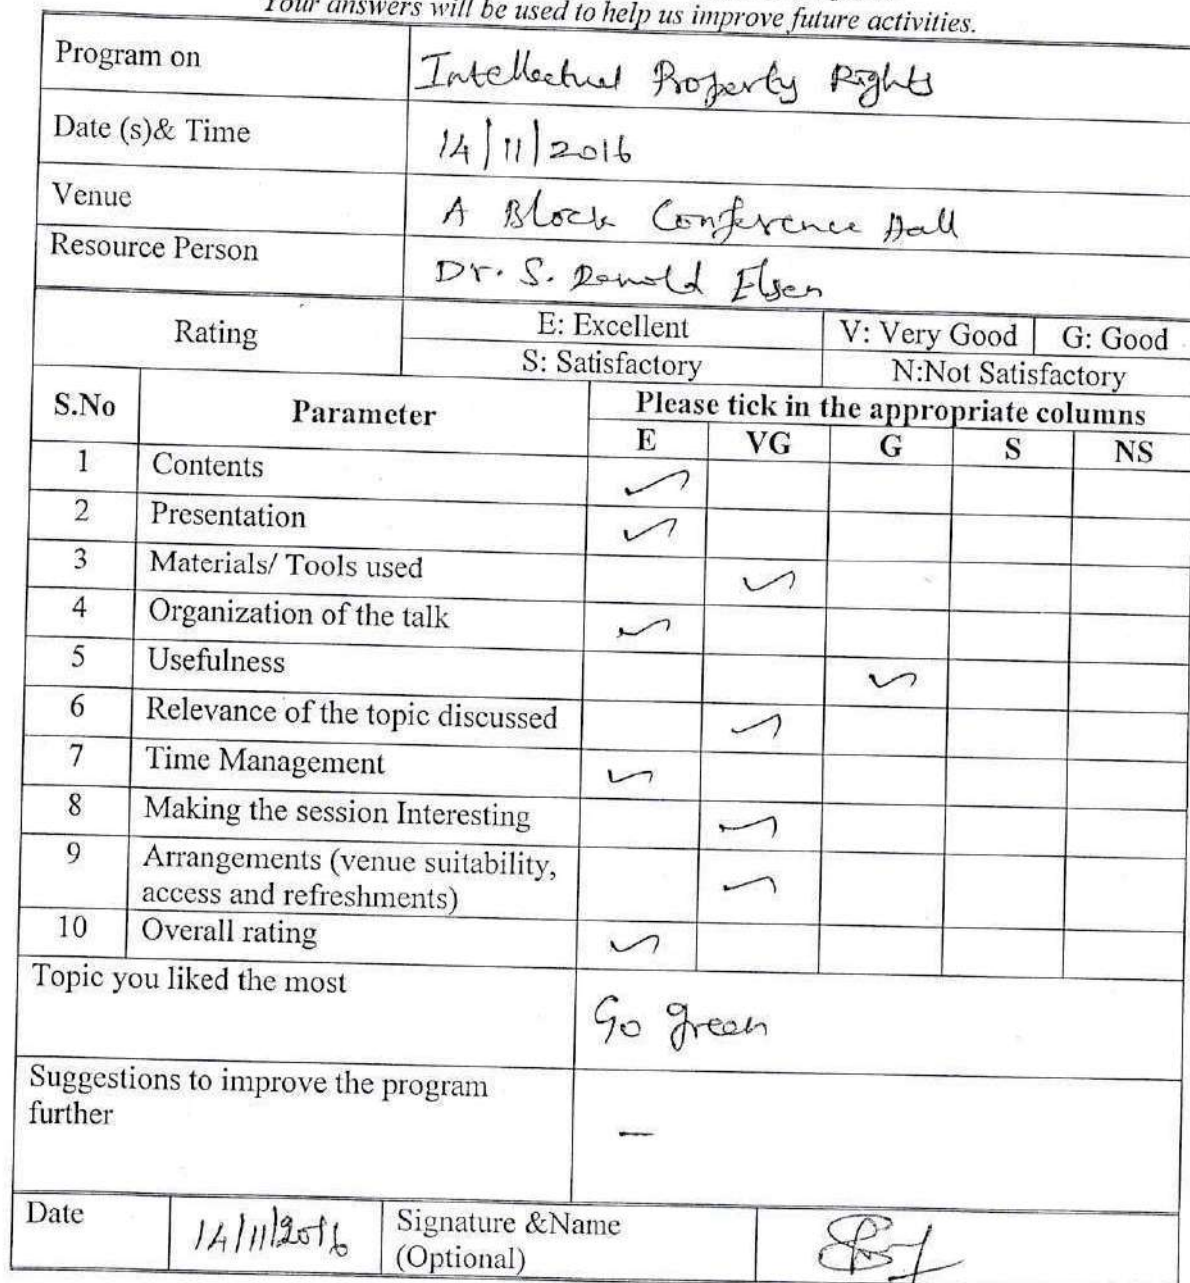 Your answers will be used to help us improve future activities.
Program on Intellectual Property Rights
Date (s)& Time 14/11/2016
Venue A Block Conference Hall
Resource Person Dr. S. Elsen
Rating E: Excellent V: Very Good G: Good
S: Satisfactory N:Not Satisfactory
S.No Parameter Please tick in the appropriate columns
E VG G S NS
1 Contents ✓
2 Presentation ✓
3 Materials/ Tools used ✓
4 Organization of the talk ✓
5 Usefulness ✓
6 Relevance of the topic discussed ✓
7 Time Management ✓
8 Making the session Interesting ✓
9 Arrangements (venue suitability,
access and refreshments) ✓
10 Overall rating ✓
Topic you liked the most Go green
Suggestions to improve the program
further —
Date 14/11/2016 Signature &Name
(Optional)